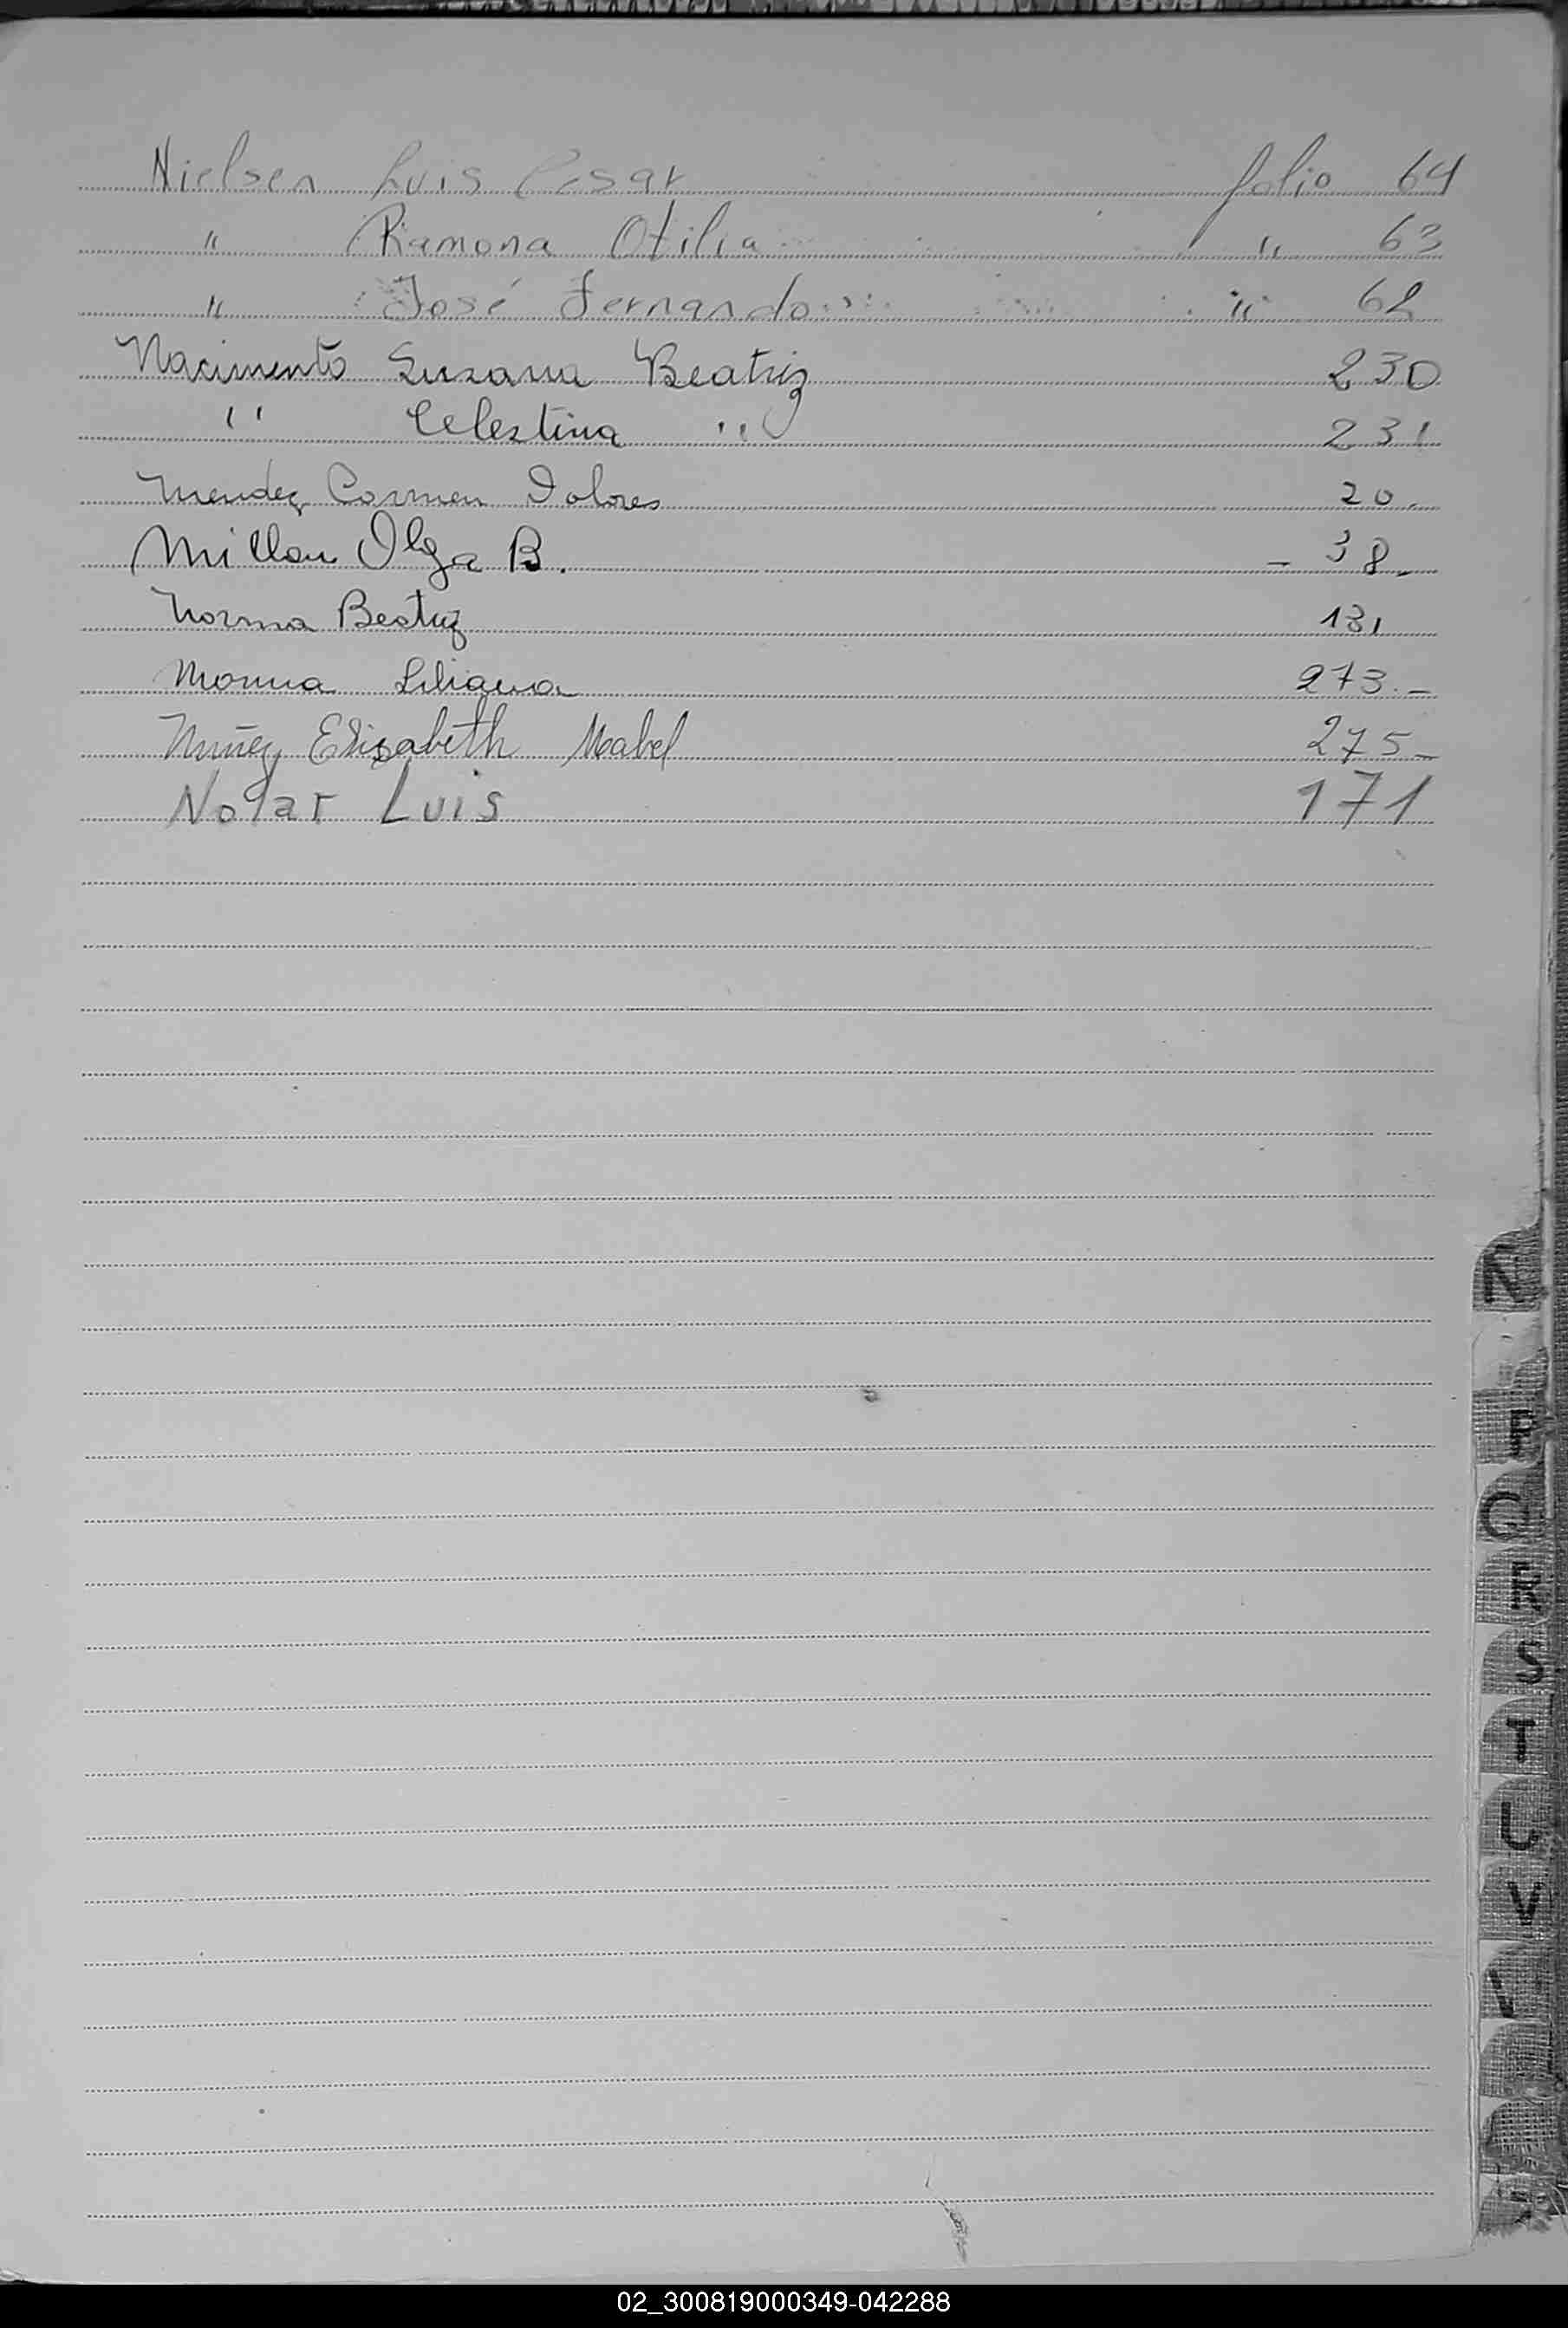 Nielsen Luis Cesar folio 64
" Ramona Otilia " 63
" José Fernando " 62
Nacimento Susana Beatriz 230
" Celestina " 231
Mendez Carmen Dolores 20.
Millan Olga B. - 38-
Norma Beatriz 131
Liliana 273.-
Nuñez Elizabeth Mabel 275-
Luis 171
N
P
Q
R
S
T
U
V
02_300819000349-042288